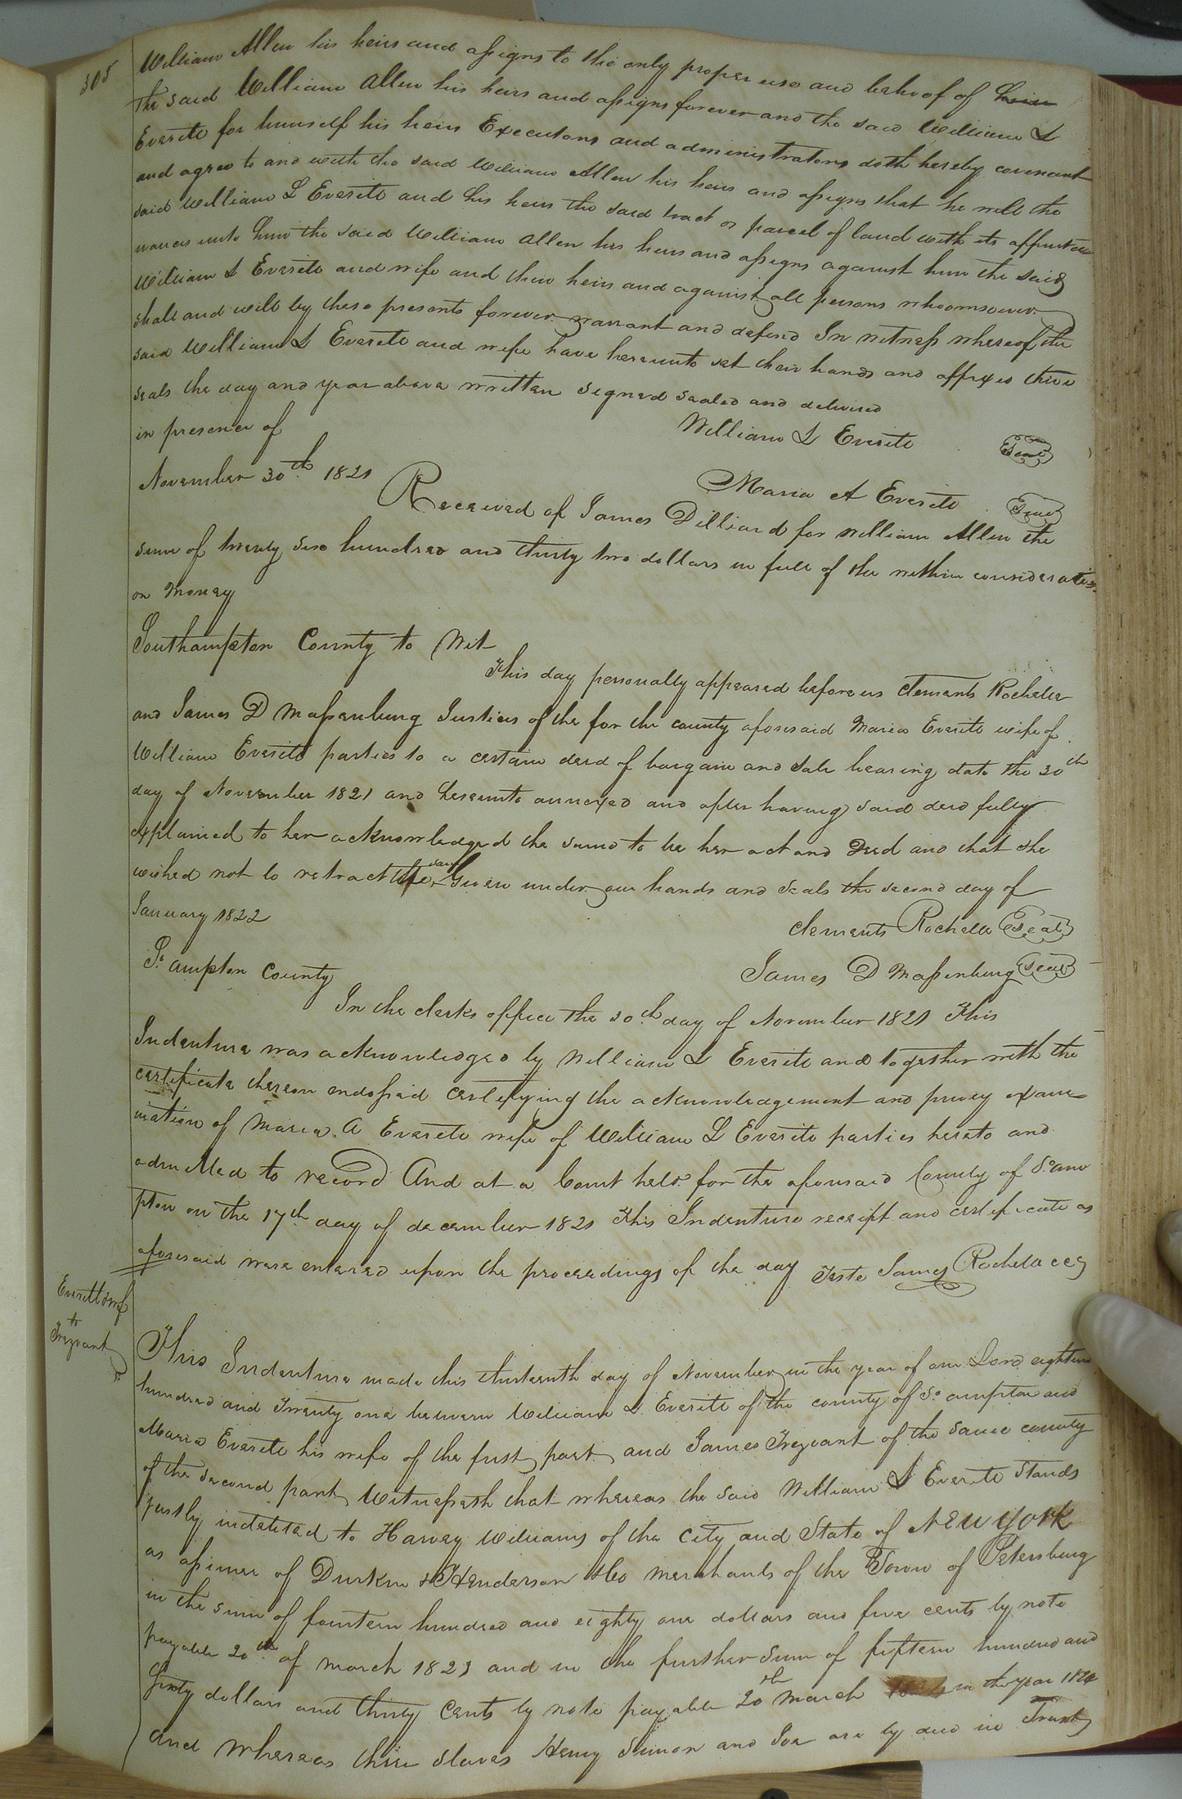 305
William Allen his heirs and assigns to the only proper use and behoof of him
the said William Allen his heirs and assigns forever and the said William L
Everitt for himself his heirs Executors and administrators doth hereby covenant
and agree to and with the said William Allen his heirs and assigns that he will the
said William L Everitt and his heirs the said tract or parcel of land with its appurte
nances unto him the said William Allen his heirs and assigns against him the said
William L Everitt and wife and their heirs and against all persons whomsoever
shall and will by these presents forever warrant and defend In witness whereof the
said William L Everitt and wife have hereunto set their hands and affixed their
seals the day and year above written signed sealed and delivered
in presence of
William L Everitt Seal
November 30th 1821
Maria A Everitt Seal
Received of James Dilliard for William Allen the
sum of twenty six hundred and thirty two dollars in full of the within considerati
on money
Southampton County to Wit
This day personally appeared before us Clements Rochelle
and James D Massenburg Justices of the for the county aforesaid Maria Everitt wife of
William Everitt parties to a certain deed of bargain and sale bearing date the 30th
day of November 1821 and hereunto annexed and after having said deed fully
explained to her acknowledged the same to be her act and Deed and that she
wished not to retract the same Given under our hands and seals the second day of
January 1822
Clements Rochelle Seal
James D Massenburg Seal
So ampton County
In the clerks office the 30th day of November 1821 This
Indenture was acknowledged by William L Everitt and together with the
certificate thereon endorsed certifying the acknowledgement and privy exami
nation of Maria A Everitt wife of William L Everitt parties hereto and
admitted to record And at a Court held for the aforesaid County of So am
pton on the 17th day of december 1821 This Indenture receipt and certificate as
aforesaid were entered upon the proceedings of the day Teste James Rochelle cc
Everitt & wf
to
Trezvant
This Indenture made this thirteenth day of November in the year of our Lord eighteen
hundred and Twenty one between William L Everitt of the county of So ampton and
Maria Everitt his wife of the first part and James Trezvant of the same county
of the second part Witnesseth that whereas the said William L Everitt stands
justly indebted to Harvey Williams of the city and State of New York
as assinee of Durkin & Henderson &Co merchants of the Town of Petersburg
in the sum of fourteen hundred and eighty one dollars and five cents by note
payable 20th of march 1823 and in the further sum of fifteen hundred and
Sixty dollars and thirty cents by note payable 20th March in the year 1824
and whereas three slaves Henry Simon and Joe are by deed in Trust